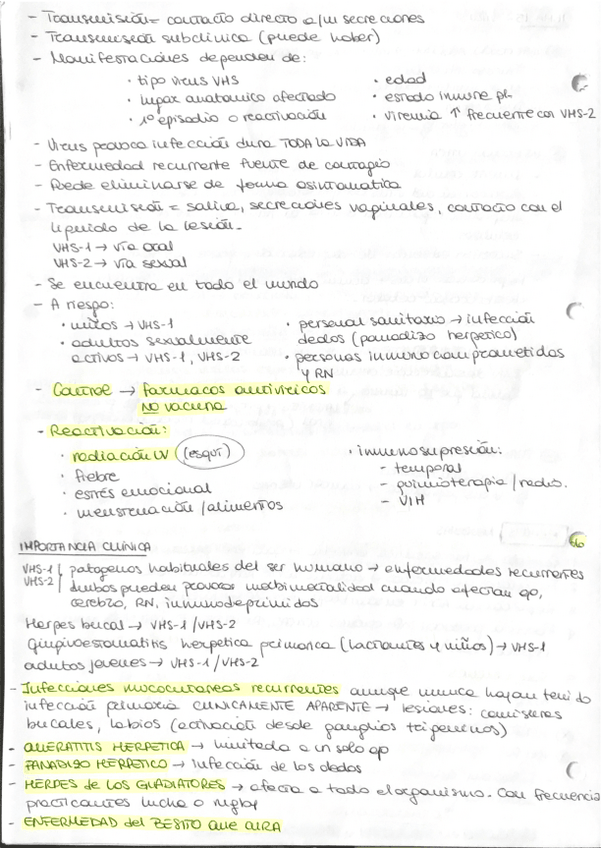 - Transmisión = contacto directo c/u secreciones
- Transmisión subclínica (puede haber)
- Manifestaciones dependen de:
· tipo virus VHS
· edad
· lugar anatomico afectado
· estado inmune pt.
· 1º episodio o reactivación
· viremia ↑ frecuente con VHS-2
- Virus provoca infección dura TODA LA VIDA
- Enfermedad recurrente fuente de contagio
- Puede eliminarse de forma asintomatica
- Transmisión = saliva, secreciones vaginales, contacto con el
líquido de la lesión.
VHS-1 → vía oral
VHS-2 → vía sexual
- Se encuentra en todo el mundo
- A riesgo:
· niños → VHS-1
· adultos sexualmente
activos → VHS-1, VHS-2
· personal sanitario → infección
dedos (panadizo herpetico)
· personas inmunocomprometidas
y RN
- Control → farmacos antiviricos
NO vacuna
- Reactivación:
· radiación UV (esquí)
· fiebre
· estrés emocional
· menstruación / alimentos
· inmunosupresión:
- temporal
- quimioterapia / radio.
- VIH
IMPORTANCIA CLÍNICA
66
VHS-1 patogenos habituales del ser humano → enfermedades recurrentes
VHS-2 Ambos pueden provocar morbimortalidad cuando afectan ojo,
cerebro, RN, inmunodeprimidos
Herpes bucal → VHS-1 / VHS-2
Gingivoestomatitis herpetica primaria (lactantes y niños) → VHS-1
adultos jovenes → VHS-1 / VHS-2
- Infecciones mucocutaneas recurrentes aunque nunca hayan tenido
infección primaria CLINICAMENTE APARENTE → lesiones: comisuras
bucales, labios (activación desde ganglios trigeminos)
- QUERATITIS HERPETICA → limitada a un solo ojo
- PANADIZO HERPETICO → Infección de los dedos
- HERPES de los GLADIATORES → afecta a todo el organismo. Con frecuencia
practicantes lucha o rugby
- ENFERMEDAD del BESITO QUE CURA